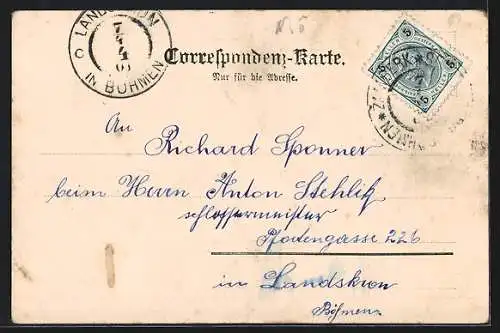 LANDSKRON
IN BÖHMEN
7/4
Correspondenz-Karte.
Nur für die Adresse.
5 5
5
An
Richard Sponner
beim Herrn Anton Stehlik
schlossermeister
Pfodengasse 226
in Landskron
Böhmen